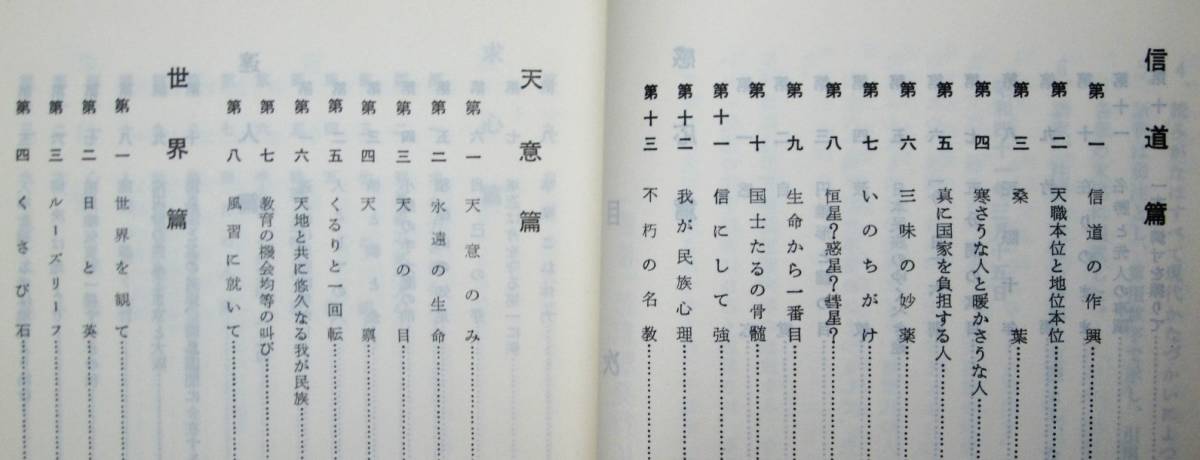 信道篇
第一 信道の作興
第二 天職本位と地位本位
第三 桑葉
第四 寒さうな人と暖かさうな人
第五 真に国家を負担する人
第六 三味の妙薬
第七 いのちがけ
第八 恒星?惑星?彗星?
第九 生命から一番目
第十 国士たるの骨髄
第十一 信にして強
第十二 我が民族心理
第十三 不朽の名教
天意篇
第一 天意のみ
第二 永遠の生命
第三 天の目
第四 天禀
第五 くるりと一回転
第六 天地と共に悠久なる我が民族
第七 教育の機会均等の叫び
第八 風習に就いて
世界篇
第一 世界を観て
第二 日と英
第三 ルーズリーフ
第四 くさび石